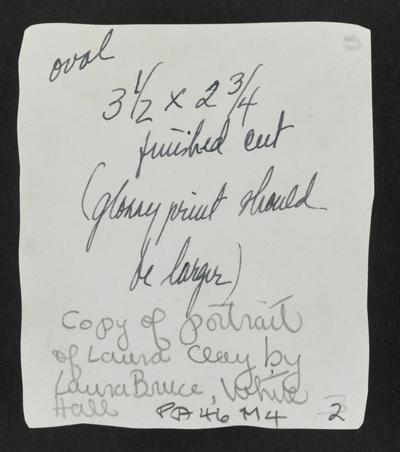 oval
3 1/2 x 2 3/4
finished cut
(glossy print should
be larger)
Copy of portrait
of Laura Clay by
Laura Bruce, White
Hall PA 46 M 4 2